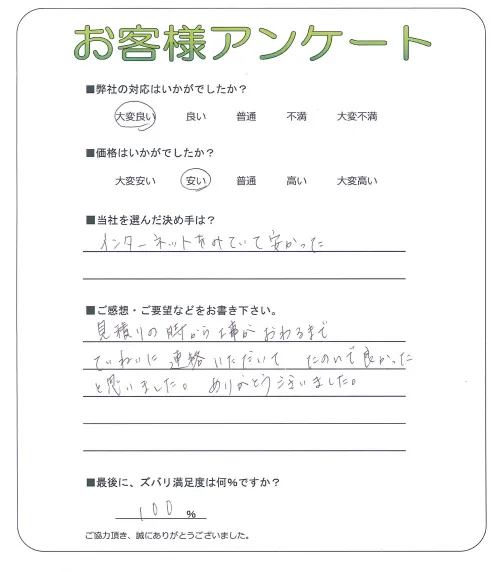 お客様アンケート
■弊社の対応はいかがでしたか？
大変良い 良い 普通 不満 大変不満
■価格はいかがでしたか？
大変安い 安い 普通 高い 大変高い
■当社を選んだ決め手は？
インターネットをみていて安かった
■ご感想・ご要望などをお書き下さい。
見積りの時から工事がおわるまで
ていねいに連絡いただいて たのいで良かった
と思いました。ありがとう ございました。
■最後に、ズバリ満足度は何％ですか？
100 ％
ご協力頂き、誠にありがとうございました。